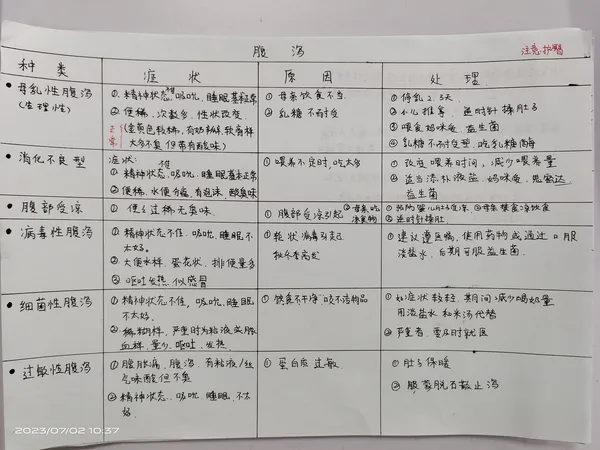 腹泻
注意护臀
种类 症状 原因 处理
• 母乳性腹泻
(生理性)
① 精神状态得、吸吮、睡眠基本正常
② 便稀、次数多、性状改变
正常
(金黄色较稀,有奶瓣,软膏样
大多不臭但带有酸味)
① 母亲饮食不当
② 乳糖不耐受
① 停乳2.3天
② 小儿推拿 逆时针揉肚子
③ 喂食妈咪爱、益生菌
④ 乳糖不耐受型,吃乳糖酶
• 消化不良型
症状:
① 精神状态得、吸吮、睡眠基本正常
② 便稀、水便分离、有泡沫、酸臭味
① 喂养不定时、吃太多
① 改变喂养时间,减少喂养量
② 适当添补液盐、妈咪爱、思密达
益生菌
• 腹部受凉
① 便便过稀无臭味
① 腹部受凉引起 ② 母亲吃凉食物
① 防随婴儿肚子受凉 ② 母亲禁食凉饮食
③ 逆时针揉肚
• 病毒性腹泻
① 精神状态不佳、吸吮、睡眠不
太好。
② 大便水样、蛋花状、排便量多
③ 呕吐发热 似感冒
① 轮状病毒引起
秋冬季高发
① 建议遵医嘱,使用药物或通过口服
淡盐水,后期可服益生菌
• 细菌性腹泻
① 精神状态不佳、吸吮、睡眠
不太好
② 稀糊样,严重时为粘液或脓
血样、量少、呕吐、发热
① 饮食不干净 咬不洁物品
① 如症状较轻,期间减少喝奶量
用淡盐水和米汤代替
② 严重者要及时就医
• 过敏性腹泻
① 腹胀痛、腹泻、有粘液/血丝
气味酸但不臭
② 精神状态、吸吮 睡眠 不太
好.
① 蛋白质过敏
① 肚子保暖
② 服蒙脱石散止泻
2023/07/02 10:37